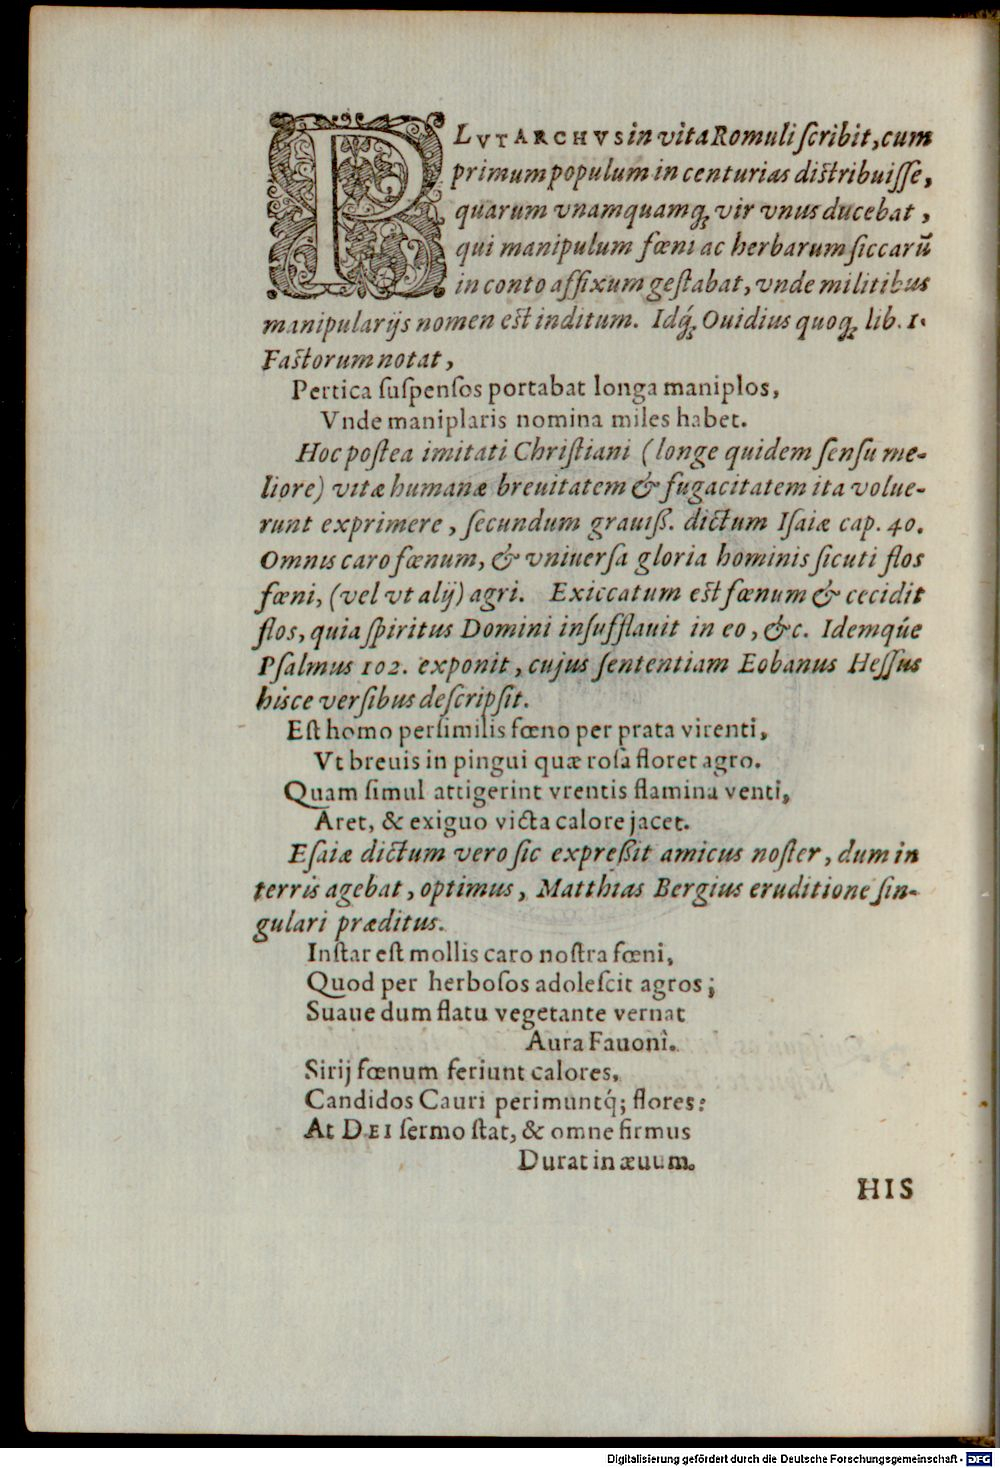 PLVTARCHVS in vita Romuli ſcribit, cum
primum populum in centurias diſtribuiſſe,
quarum vnamquamq́; vir vnus ducebat,
qui manipulum fœni ac herbarum ſiccarũ
in conto affixum geſtabat, vnde militibus
manipularijs nomen eſt inditum. Idq́; Ouidius quoq; lib. 1.
Faſtorum notat,
Pertica ſuſpenſos portabat longa maniplos,
Vnde maniplaris nomina miles habet.
Hoc poſtea imitati Chriſtiani (longe quidem ſenſu me-
liore) vitæ humanæ breuitatem & fugacitatem ita volue-
runt exprimere, ſecundum grauiß. dictum Iſaiæ cap. 40.
Omnis caro fœnum, & vniuerſa gloria hominis ſicuti flos
fœni, (vel vt alij) agri. Exiccatum eſt fœnum & cecidit
flos, quia ſpiritus Domini inſufflauit in eo, &c. Idemq́ue
Pſalmus 102. exponit, cujus ſententiam Eobanus Heſſus
hisce verſibus deſcripſit.
Eſt homo perſimilis fœno per prata virenti,
Vt breuis in pingui quæ roſa floret agro.
Quam ſimul attigerint vrentis flamina venti,
Aret, & exiguo victa calore jacet.
Eſaiæ dictum vero ſic expreßit amicus noſter, dum in
terris agebat, optimus, Matthias Bergius eruditione ſin-
gulari præditus.
Inſtar eſt mollis caro noſtra fœni,
Quod per herboſos adoleſcit agros;
Suaue dum flatu vegetante vernat
Aura Fauonî.
Sirij fœnum feriunt calores,
Candidos Cauri perimuntq́; flores:
At DEI ſermo ſtat, & omne firmus
Durat in æuum.
HIS
Digitalisierung gefördert durch die Deutsche Forschungsgemeinschaft - DFG